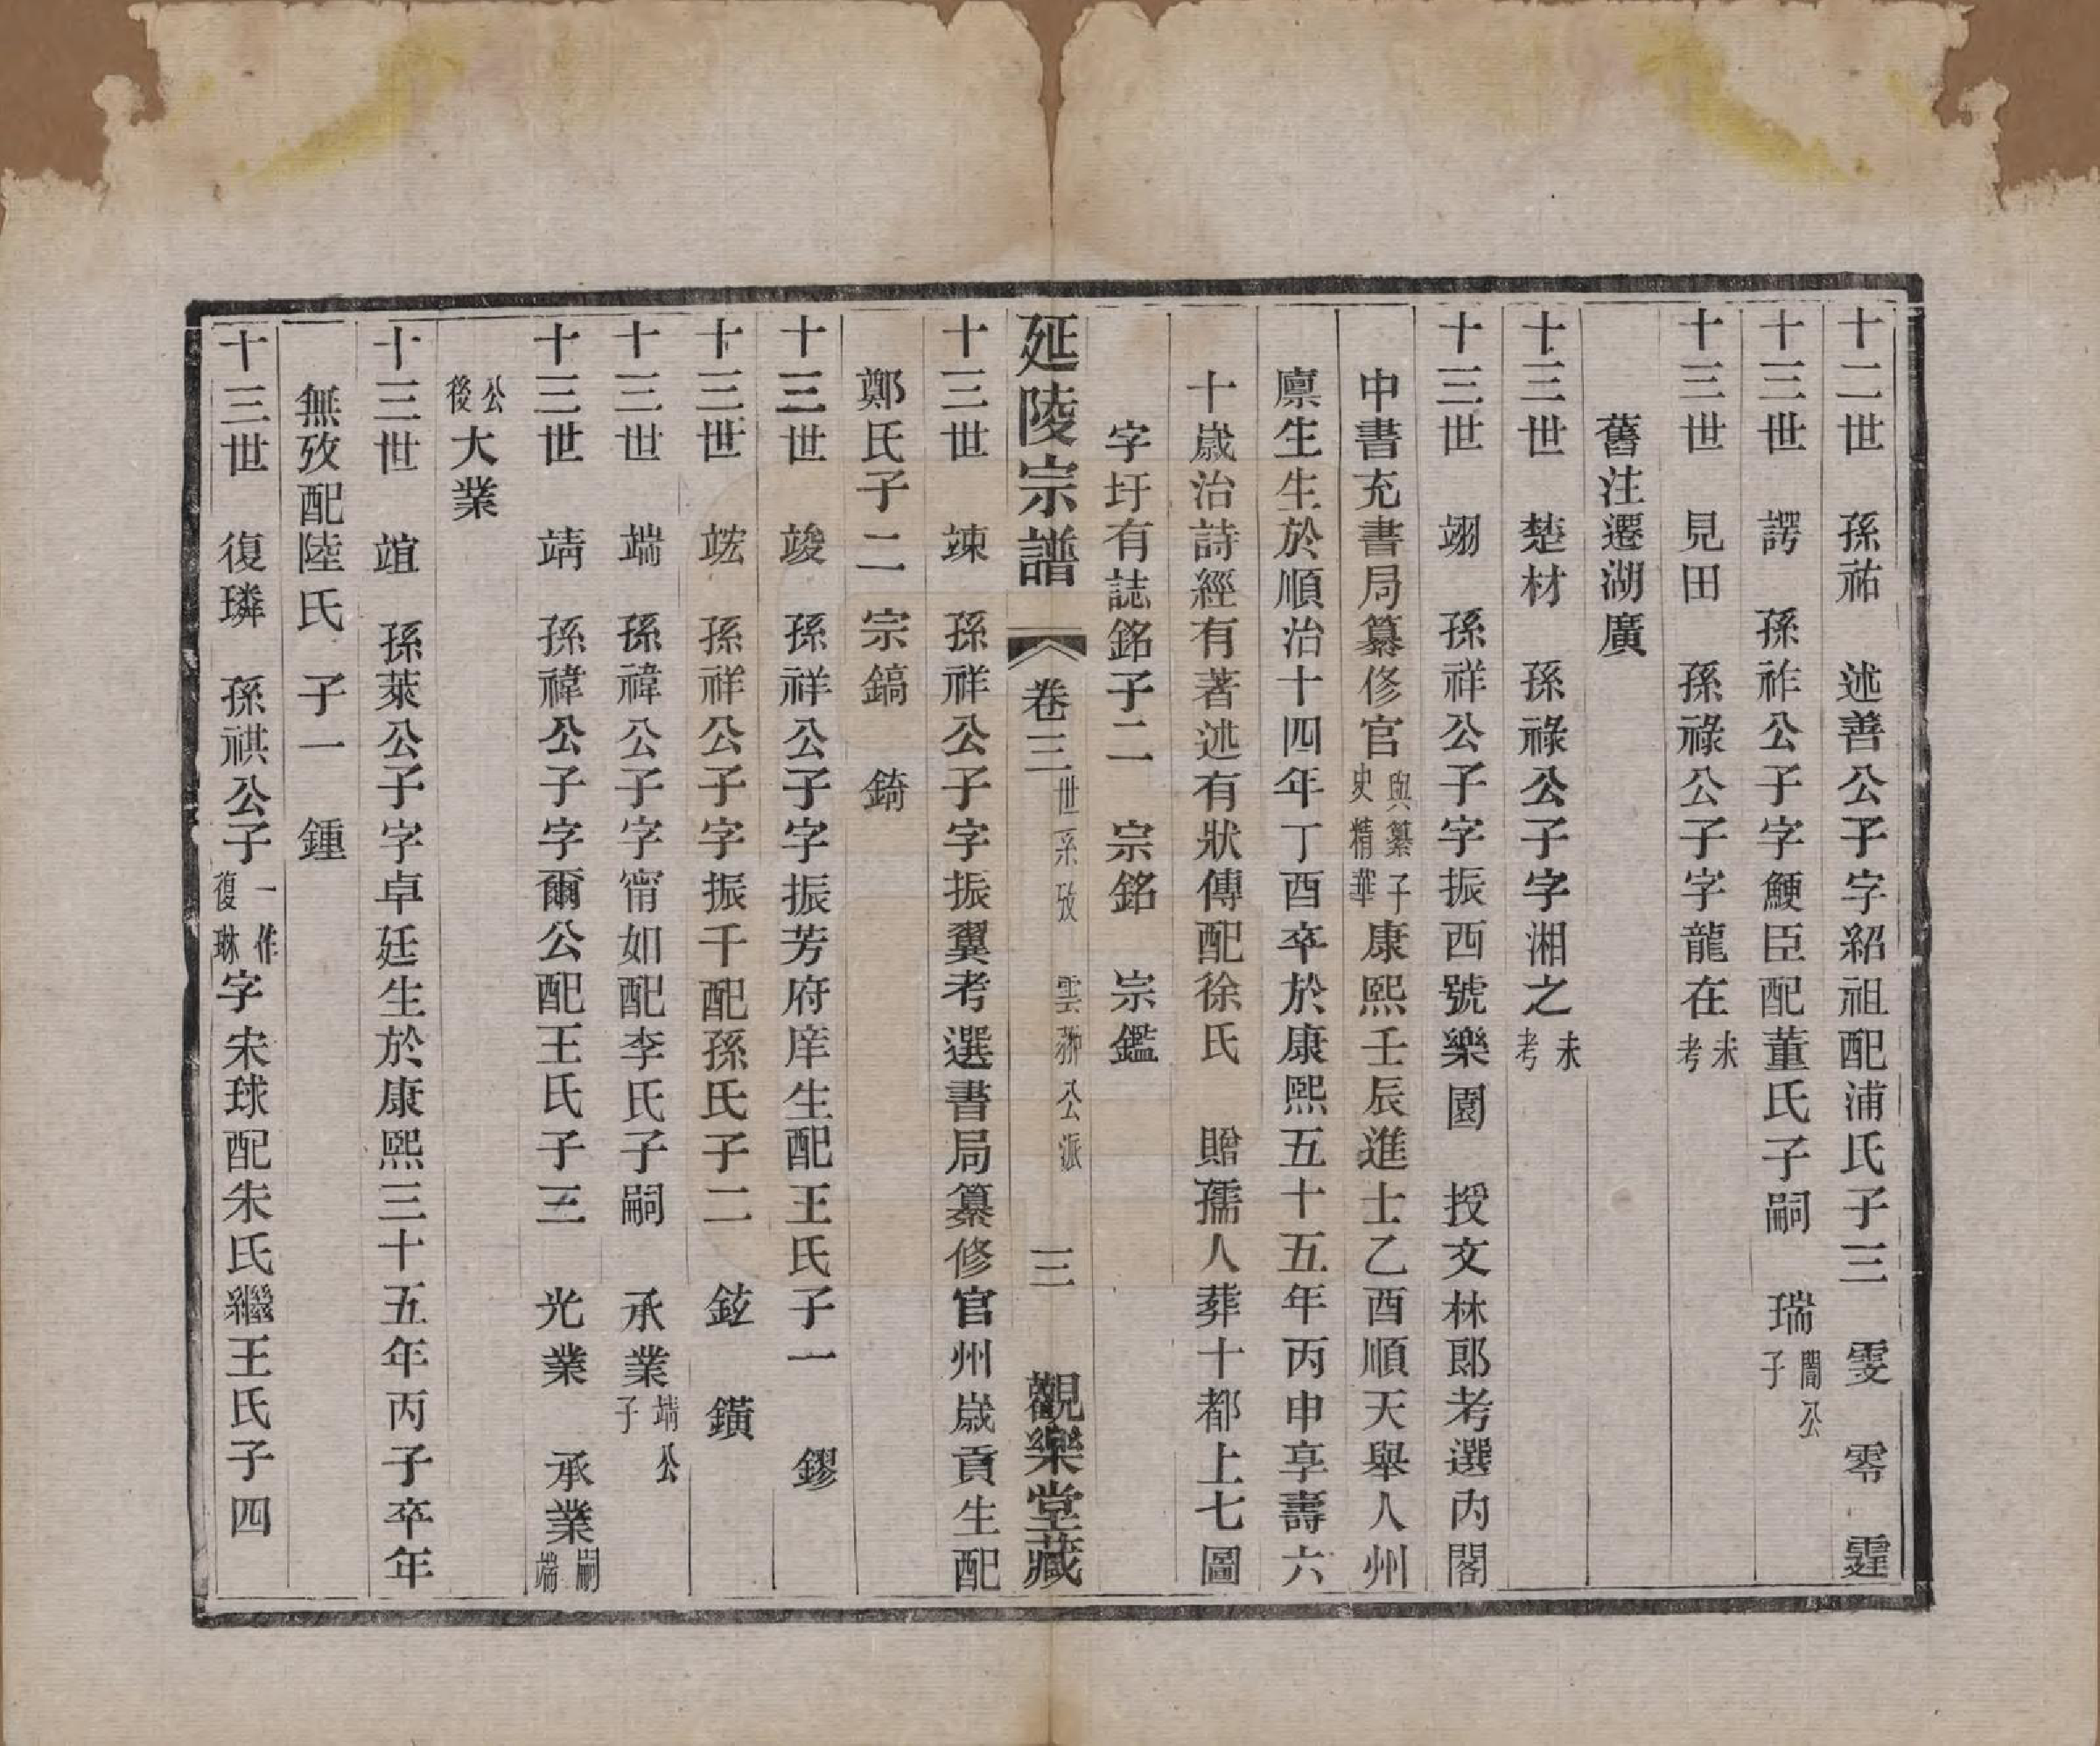 十二世　孫祐　述善公子字紹祖配浦氏子三　雯　零　霆
十三世　諤　孫祚公子字鯁臣配董氏子嗣　瑞誾公子
十三世　見田　孫祿公子字龍在未考
舊注遷湖廣
十三世　楚材　孫祿公子字湘之未考
十三世　翊　孫祥公子字振西號樂園　授文林郎考選內閣
中書充書局纂修官與纂子史精華康熙壬辰進士乙酉順天舉人州
廩生生於順治十四年丁酉卒於康熙五十五年丙申享壽六
十歲治詩經有著述有狀傳配徐氏　贈孺人葬十都上七圖
字圩有誌銘子二　宗銘　宗鑑
延陵宗譜　卷三　世系攷　雲　公派　三　觀樂堂藏
十三世　竦　孫祥公子字振翼考選書局纂修官州歲貢生配
鄭氏子二　宗鎬　錡
十三世　竣　孫祥公子字振芳府庠生配王氏子一　鏐
十三世　竑　孫祥公子字振千配孫氏子二　鉉　鐄
十三世　端　孫禕公子字甯如配李氏子嗣　承業靖公子
十三世　靖　孫禕公子字爾公配王氏子三　光業　承業嗣端
公後大業
十三世　竩　孫萊公子字卓廷生於康熙三十五年丙子卒年
無攷配陸氏　子一　鍾
十三世　復璘　孫祺公子一作復琳字宋球配朱氏繼王氏子四